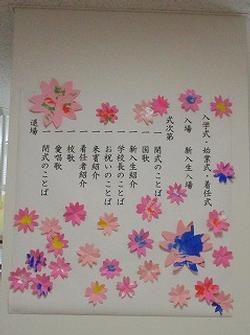 入学式・始業式・着任式
入場　新入生入場
式次第
一　開式のことば
一　国歌
一　新入生紹介
一　学校長のことば
一　お祝いのことば
一　来賓紹介
一　着任者紹介
一　校歌
一　愛唱歌
一　閉式のことば
退場